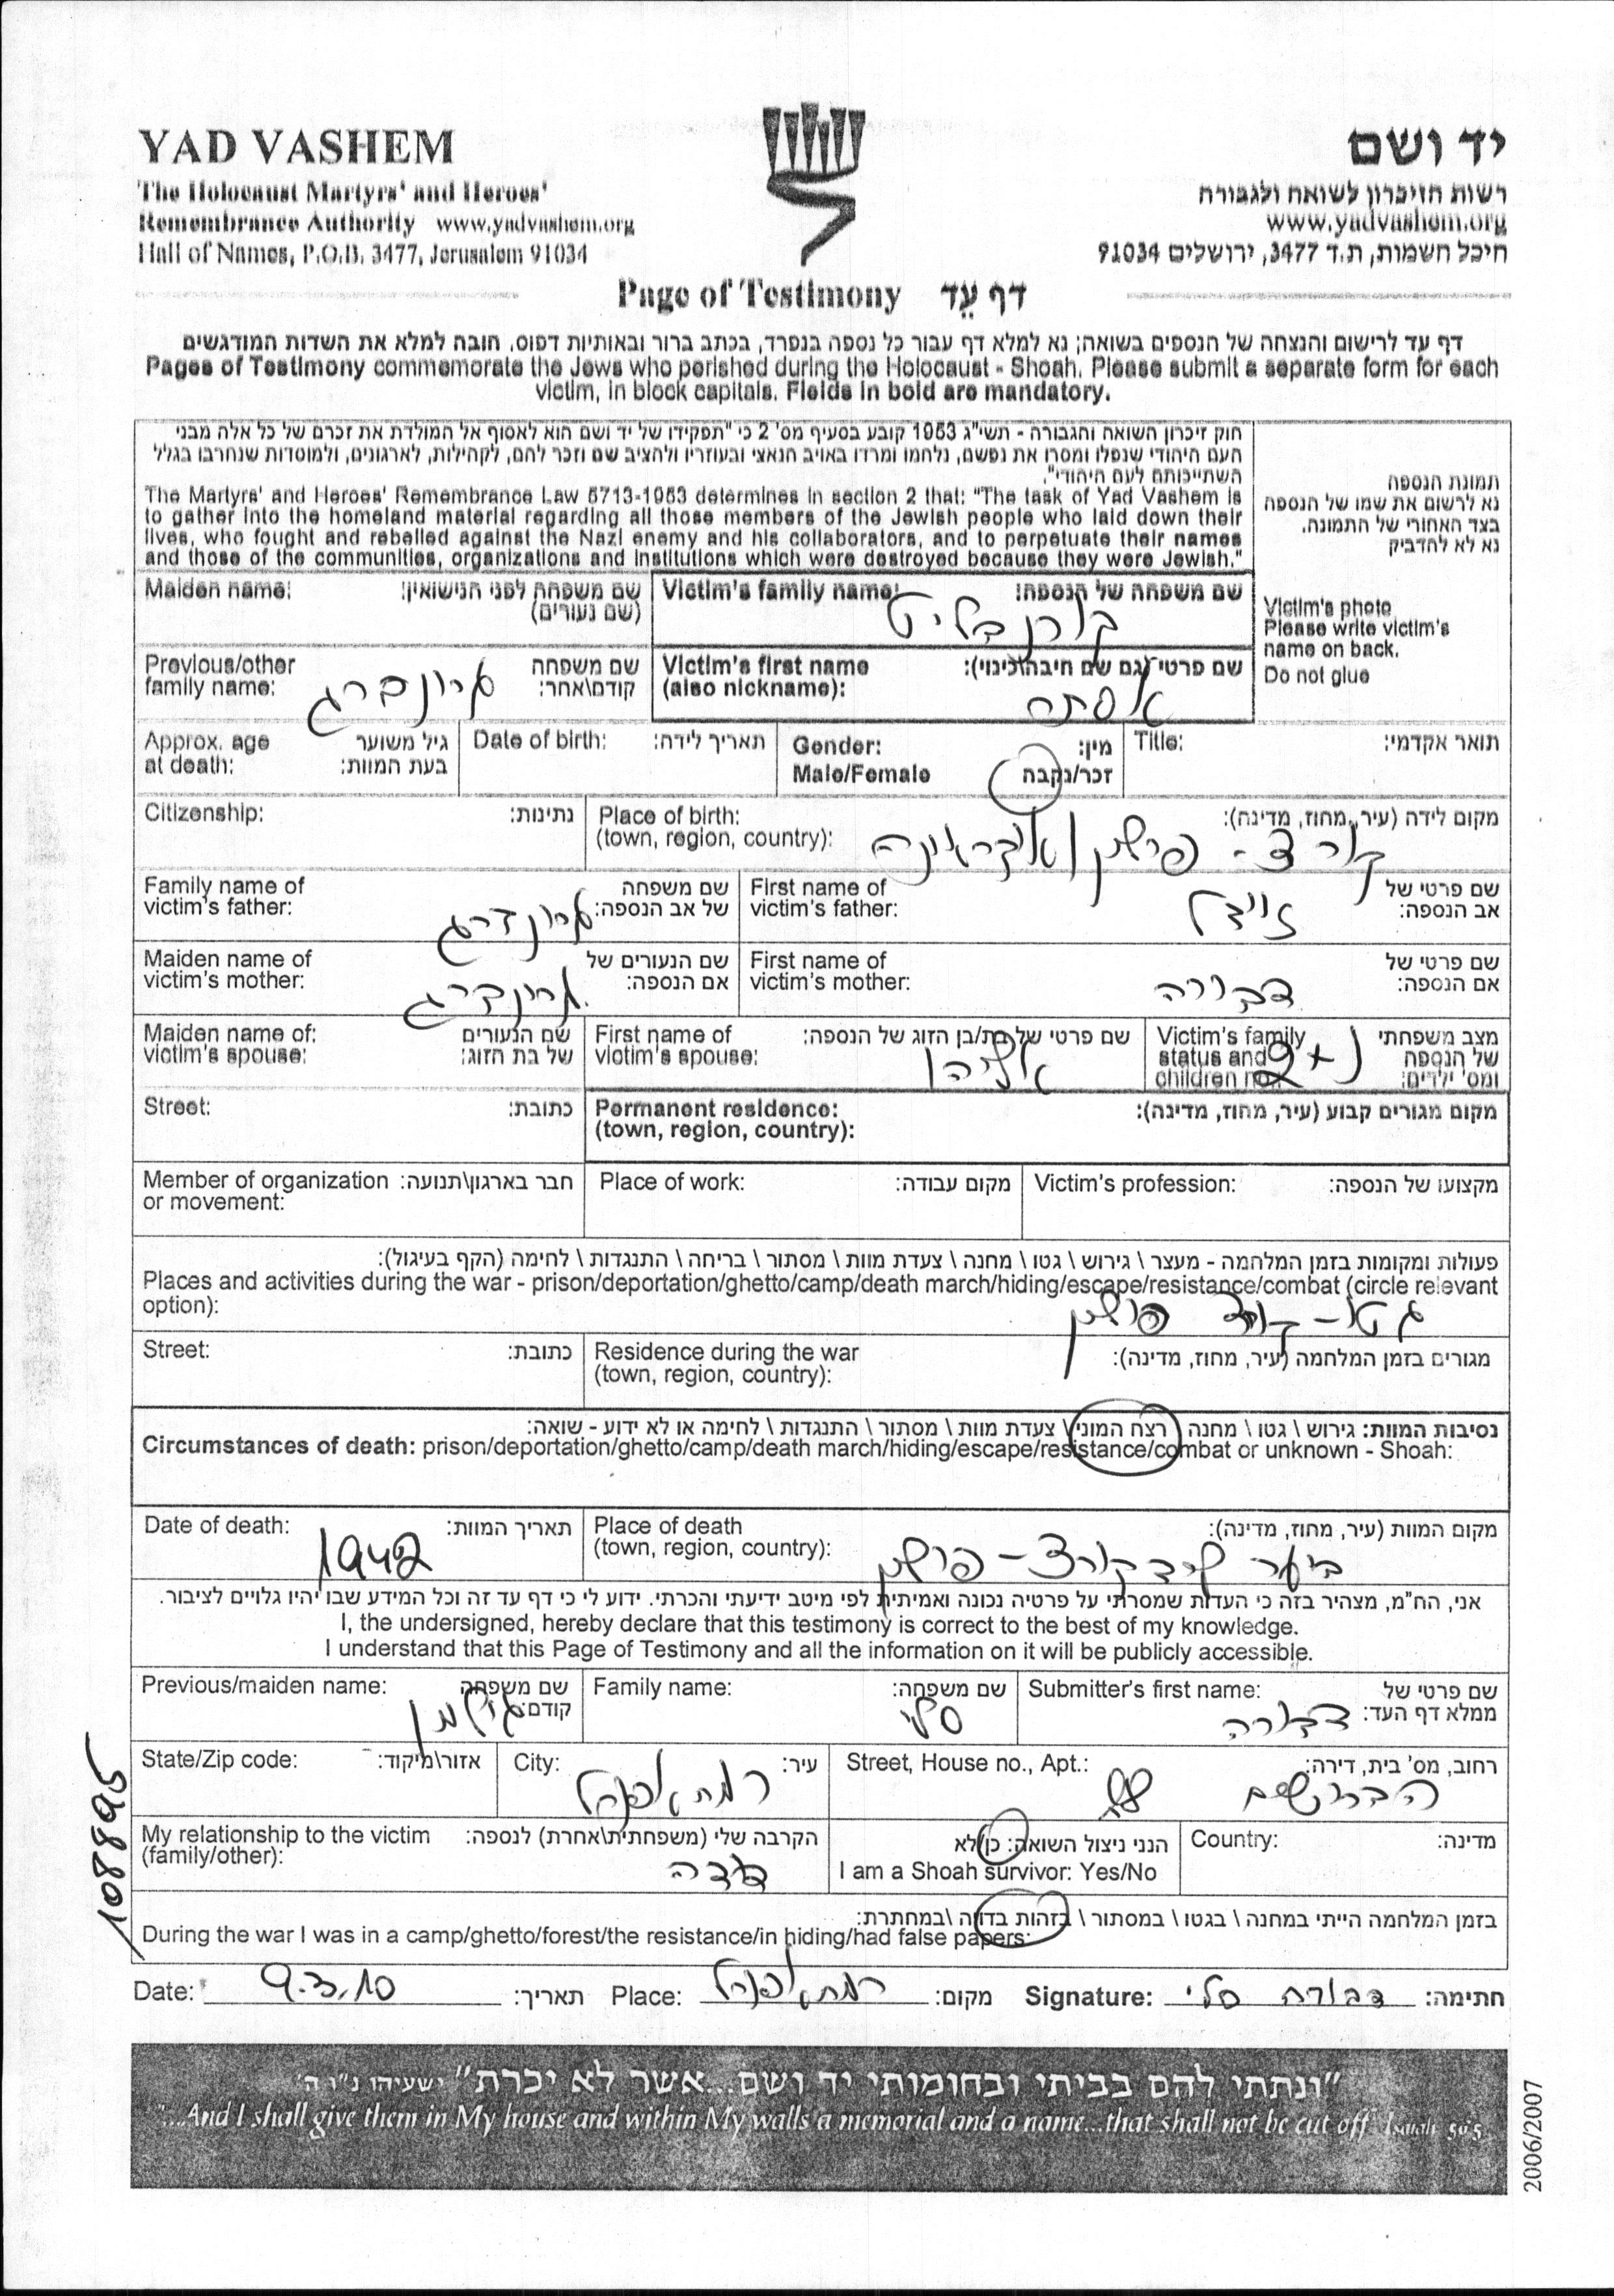 YAD VASHEM
The Holocaust Martyrs' and Heroes'
Remembrance Authority www.yadvashem.org
Hall of Names, P.O.B. 3477, Jerusalem 91034
יד ושם
רשות הזיכרון לשואה ולגבורה
www.yadvashem.org
היכל השמות, ת.ד 3477, ירושלים 91034
Page of Testimony דף עֵד
דף עד לרישום והנצחה של הנספים בשואה; נא למלא דף עבור כל נספה בנפרד, בכתב ברור ובאותיות דפוס. חובה למלא את השדות המודגשים
Pages of Testimony commemorate the Jews who perished during the Holocaust - Shoah. Please submit a separate form for each
victim, in block capitals. Fields in bold are mandatory.
חוק זיכרון השואה והגבורה - תשי"ג 1953 קובע בסעיף מס' 2 כי "תפקידו של יד ושם הוא לאסוף אל המולדת את זכרם של כל אלה מבני
העם היהודי שנפלו ומסרו את נפשם, נלחמו ומרדו באויב הנאצי ובעוזריו ולהציב שם וזכר להם, לקהילות, לארגונים, ולמוסדות שנחרבו בגלל
השתייכותם לעם היהודי".
The Martyrs' and Heroes' Remembrance Law 5713-1953 determines in section 2 that: "The task of Yad Vashem is
to gather into the homeland material regarding all those members of the Jewish people who laid down their
lives, who fought and rebelled against the Nazi enemy and his collaborators, and to perpetuate their names
and those of the communities, organizations and institutions which were destroyed because they were Jewish."
תמונת הנספה
נא לרשום את שמו של הנספה
בצד האחורי של התמונה.
נא לא להדביק
Victim's photo
Please write victim's
name on back.
Do not glue
Victim's family name: שם משפחה של הנספה:
קורנבליט
Maiden name: שם משפחה לפני הנישואין:
(שם נעורים)
Victim's first name שם פרטי (גם שם חיבה\כינוי):
(also nickname):
אסתר
Previous/other שם משפחה
family name: קודם\אחר:
Title: תואר אקדמי:
Gender: מין:
Male/Female זכר/נקבה
Date of birth: תאריך לידה:
Approx. age גיל משוער
at death: בעת המוות:
Place of birth: מקום לידה (עיר, מחוז, מדינה):
(town, region, country):
קורצ - פולין אוקראינה
Citizenship: נתינות:
First name of שם פרטי של
victim's father: אב הנספה:
זיידל
Family name of שם משפחה
victim's father: של אב הנספה:
First name of שם פרטי של
victim's mother: אם הנספה:
דבורה
Maiden name of שם הנעורים של
victim's mother: אם הנספה:
Victim's family מצב משפחתי
status and של הנספה
children no.: ומס' ילדים:
נ+2
First name of שם פרטי של בת/בן הזוג של הנספה:
victim's spouse:
אליהו
Maiden name of: שם הנעורים
victim's spouse: של בת הזוג:
Permanent residence: מקום מגורים קבוע (עיר, מחוז, מדינה):
(town, region, country):
Street: כתובת:
Victim's profession: מקצועו של הנספה:
Place of work: מקום עבודה:
Member of organization חבר בארגון\תנועה:
or movement:
פעולות ומקומות בזמן המלחמה - מעצר \ גירוש \ גטו \ מחנה \ צעדת מוות \ מסתור \ בריחה \ התנגדות \ לחימה (הקף בעיגול):
Places and activities during the war - prison/deportation/ghetto/camp/death march/hiding/escape/resistance/combat (circle relevant
option):
גטו - קורצ פולין
Residence during the war מגורים בזמן המלחמה (עיר, מחוז, מדינה):
(town, region, country):
Street: כתובת:
נסיבות המוות: גירוש \ גטו \ מחנה \ רצח המוני \ צעדת מוות \ מסתור \ התנגדות \ לחימה או לא ידוע - שואה:
Circumstances of death: prison/deportation/ghetto/camp/death march/hiding/escape/resistance/combat or unknown - Shoah:
Place of death מקום המוות (עיר, מחוז, מדינה):
(town, region, country):
ביער ליד קורצ - פולין
Date of death: תאריך המוות:
1942
אני, הח"מ, מצהיר בזה כי העדות שמסרתי על פרטיה נכונה ואמיתית לפי מיטב ידיעתי והכרתי. ידוע לי כי דף עד זה וכל המידע שבו יהיו גלויים לציבור.
I, the undersigned, hereby declare that this testimony is correct to the best of my knowledge.
I understand that this Page of Testimony and all the information on it will be publicly accessible.
Submitter's first name: שם פרטי של
ממלא דף העד:
דבורה
Family name: שם משפחה:
סלי
Previous/maiden name: שם משפחה
קודם:
Street, House no., Apt.: רחוב, מס' בית, דירה:
City: עיר:
State/Zip code: אזור\מיקוד:
Country: מדינה:
הנני ניצול השואה: כן\לא
I am a Shoah survivor: Yes/No
My relationship to the victim הקרבה שלי (משפחתית\אחרת) לנספה:
(family/other):
בזמן המלחמה הייתי במחנה \ בגטו \ במסתור \ בזהות בדויה \במחתרת:
During the war I was in a camp/ghetto/forest/the resistance/in hiding/had false papers:
Date: 9.3.10 תאריך: Place: מקום: Signature: דבורה סלי חתימה:
108895
"ונתתי להם בביתי ובחומותי יד ושם...אשר לא יכרת" ישעיהו נ"ו ה'
"...And I shall give them in My house and within My walls a memorial and a name...that shall not be cut off" Isaiah 56:5
2006/2007